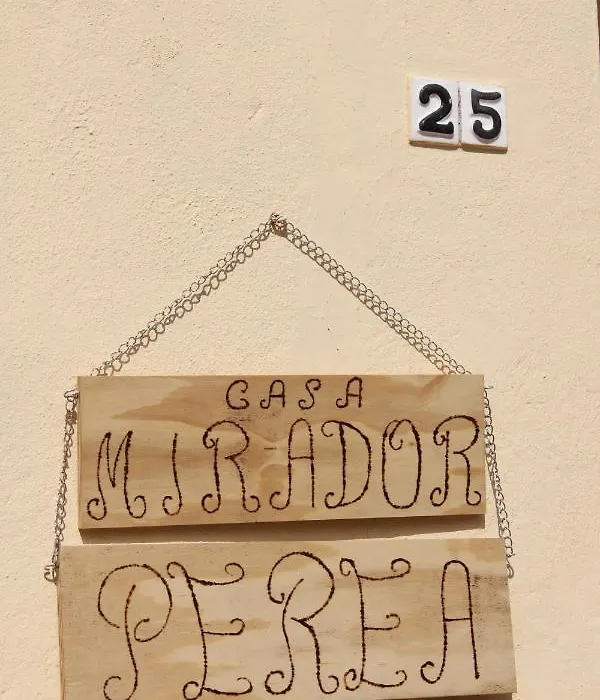 25
CASA
MIRADOR
PEREA